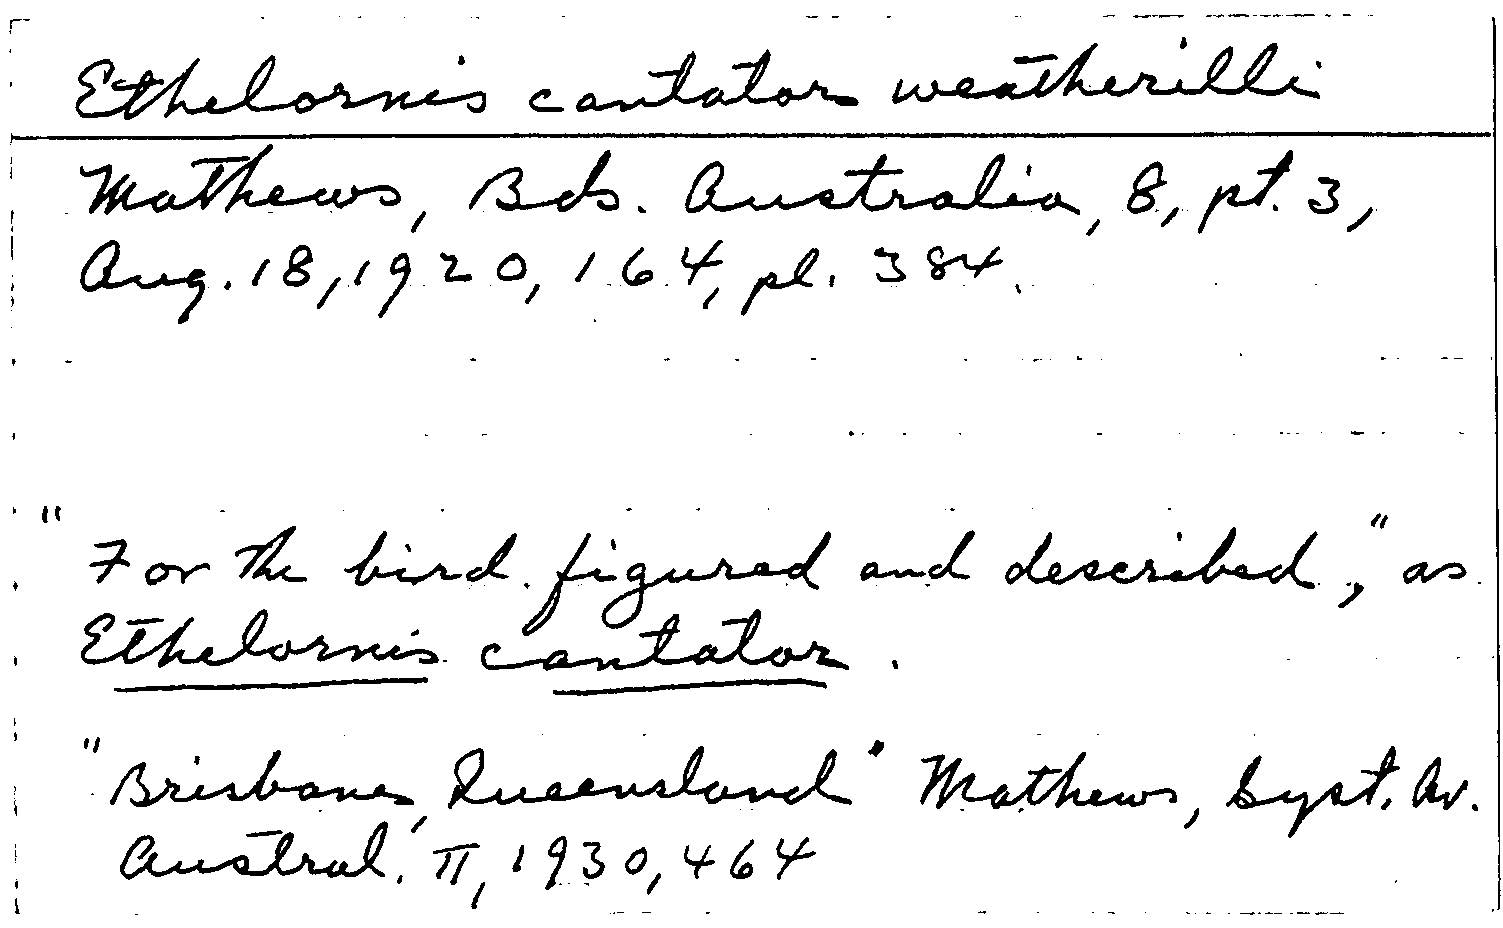 Ethelornis cantator weatherilli
Mathews, Bds. Australia, 8, pt. 3,
Aug. 18, 1920, 164, pl. 384.
"For the bird figured and described," as
Ethelornis cantator.
"Brisbane, Queensland" Mathews, Syst. Av.
Austral. II, 1930, 464